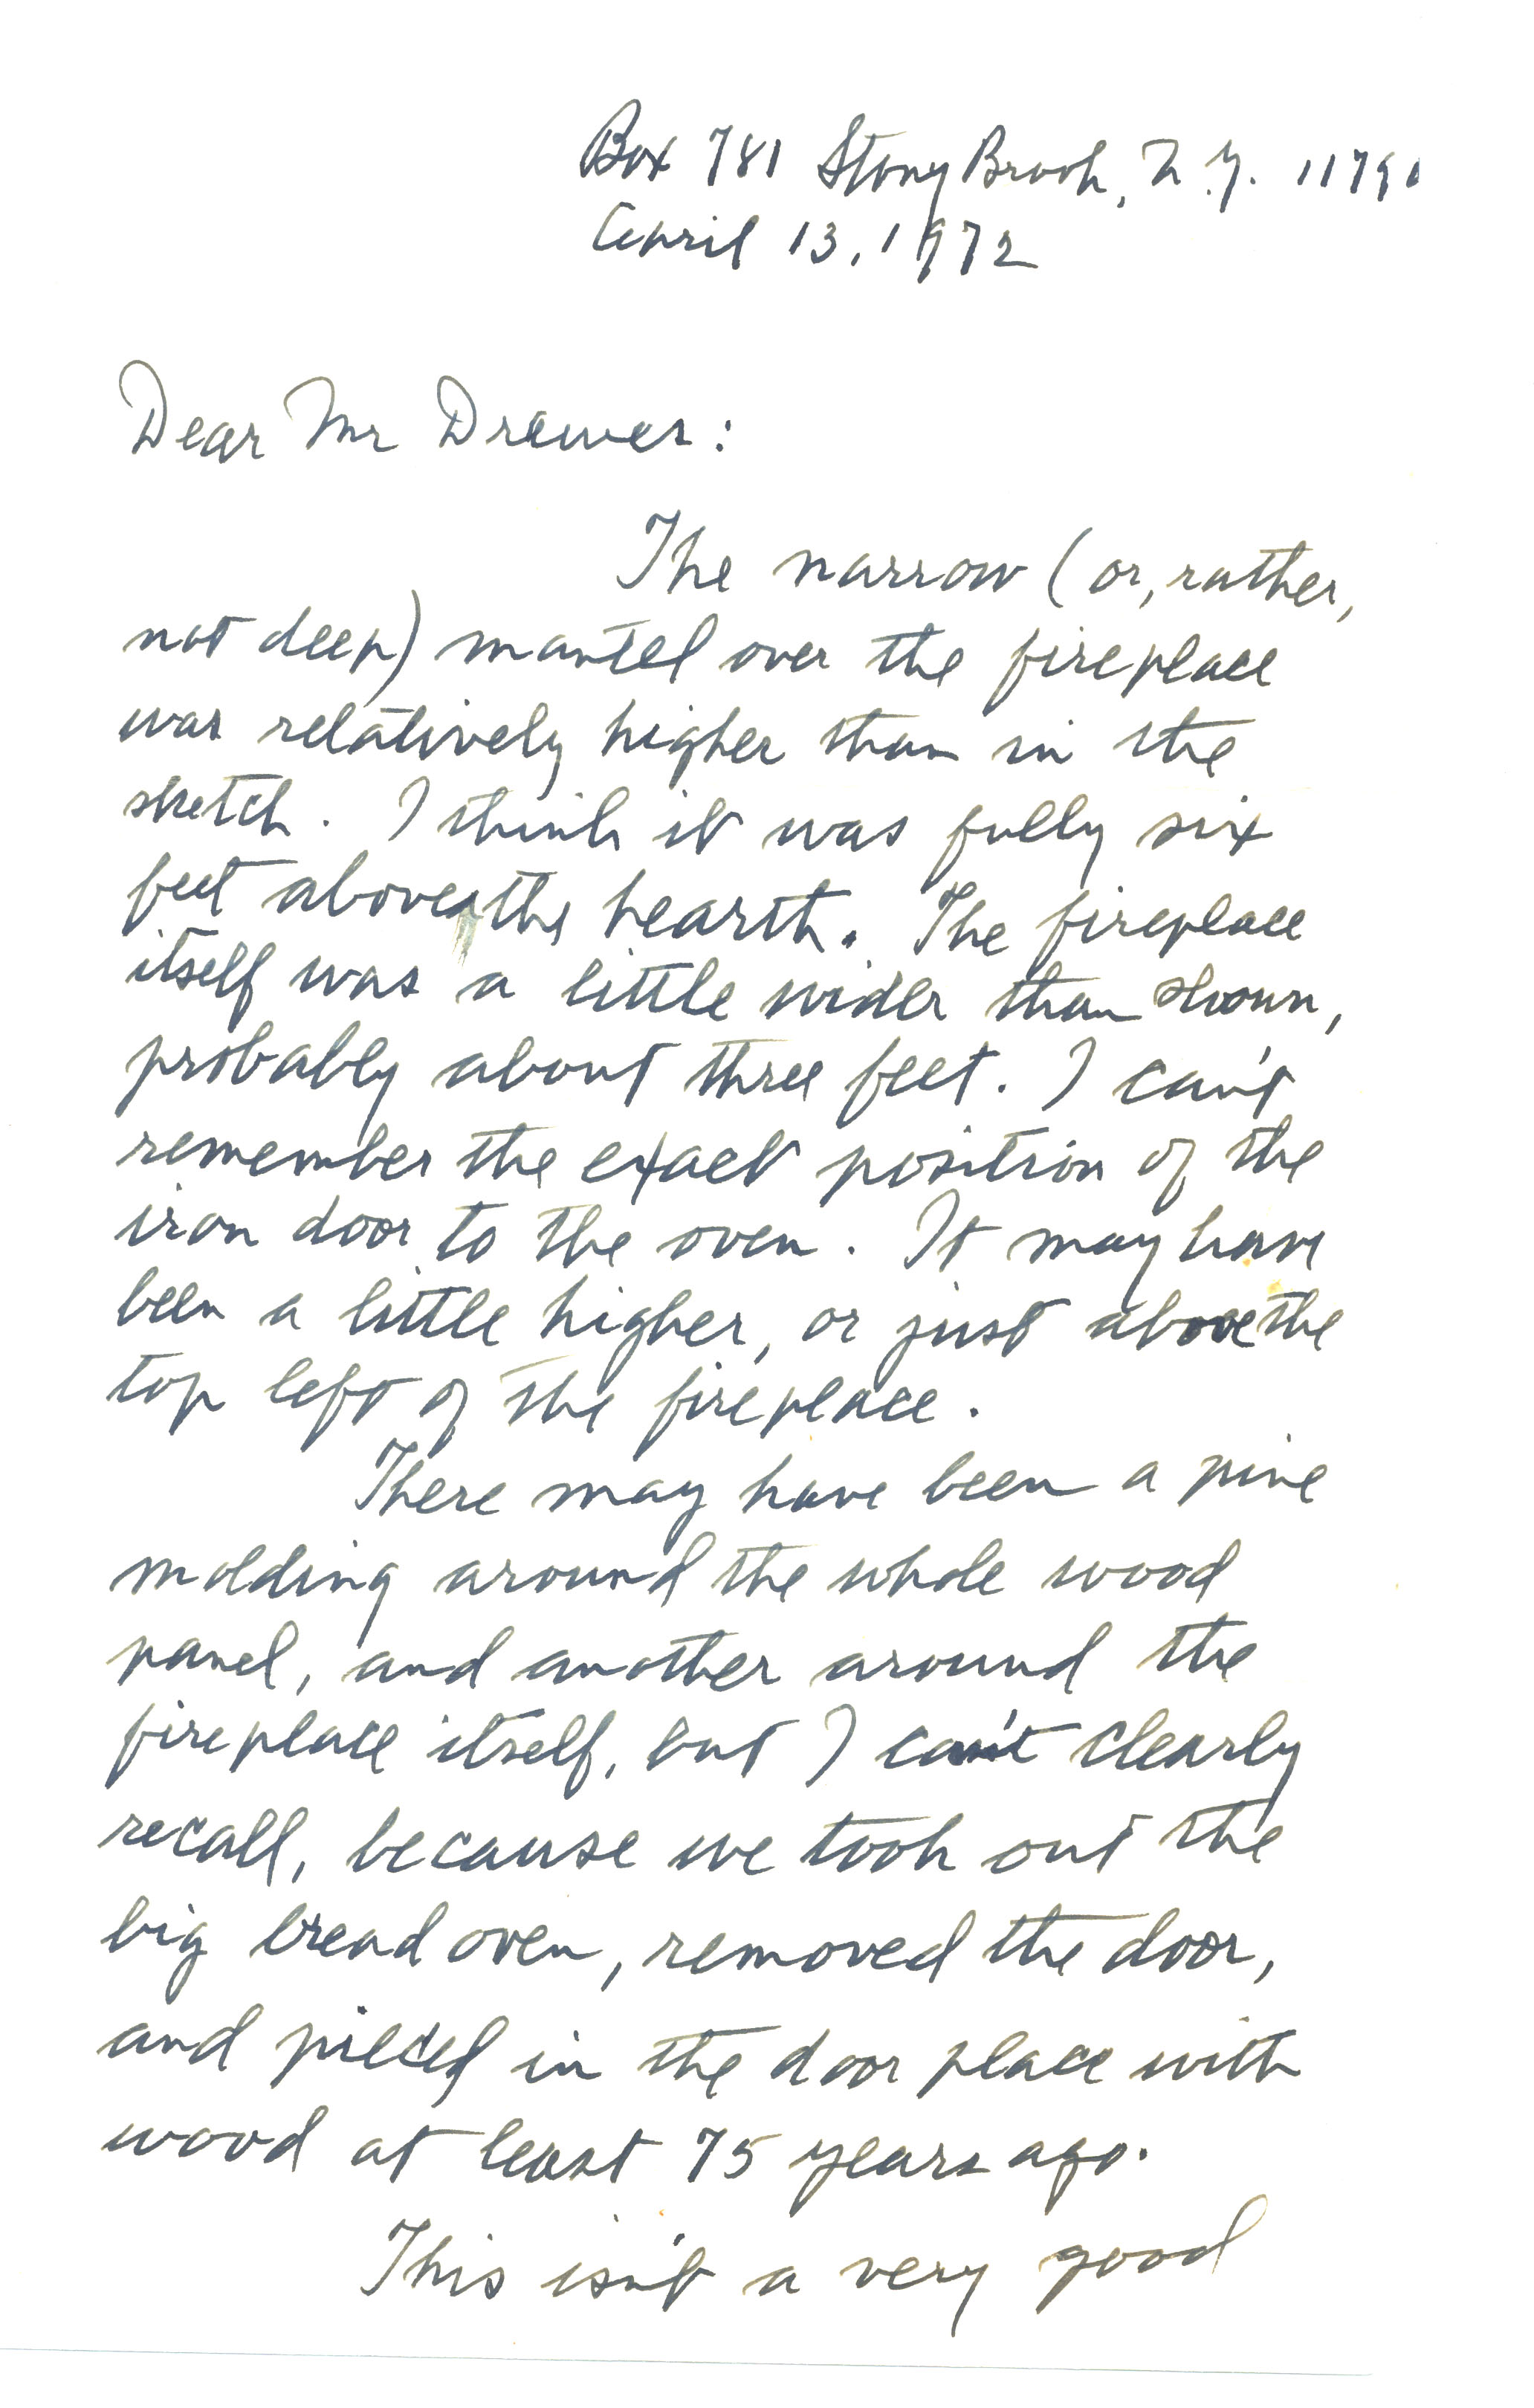 Box 781 Stony Brook, N.Y. 11790
April 13, 1972
Dear Mr Drewes:
The narrow (or, rather,
not deep) mantel over the fireplace
was relatively higher than in the
sketch. I think it was fully six
feet above the hearth. The fireplace
itself was a little wider than shown,
probably about three feet. I can't
remember the exact position of the
iron door to the oven. It may have
been a little higher, or just above the
top left of the fireplace.
There may have been a pine
molding around the whole wood
panel, and another around the
fireplace itself, but I can't clearly
recall, because we took out the
big bread oven, removed the door,
and pieced in the door place with
wood at least 75 years ago.
This isn't a very good